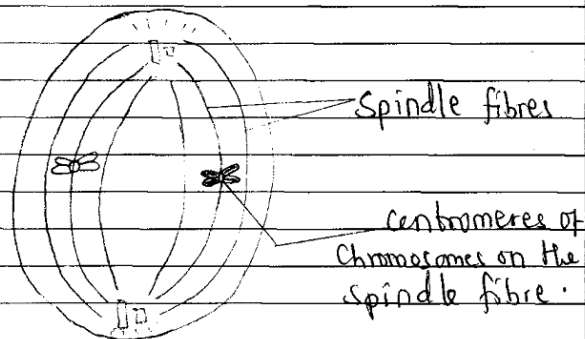 Spindle fibres
centromeres of
Chromosomes on the
spindle fibre.